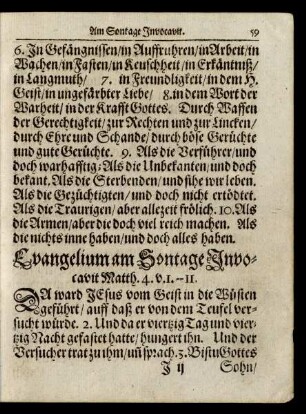 Am Sontage Invocavit. 59
6. In Gefängnissen/ in Auffruhren/ in Arbeit/ in
Wachen/ in Fasten/ in Keuschheit/ in Erkäntniß/
in Langmuth/ 7. in Freundligkeit/ in dem H.
Geist/ in ungefärbter Liebe/ 8. in dem Wort der
Warheit/ in der Krafft Gottes. Durch Waffen
der Gerechtigkeit/ zur Rechten und zur Lincken/
durch Ehre und Schande/ durch böse Gerüchte
und gute Gerüchte. 9. Als die Verführer/ und
doch warhafftig: Als die Unbekanten/ und doch
bekant. Als die Sterbenden/ und sihe wir leben.
Als die Gezüchtigten/ und doch nicht ertödtet.
Als die Traurigen/ aber allezeit frölich. 10. Als
die Armen/ aber die doch viel reich machen. Als
die nichts inne haben/ und doch alles haben.
Evangelium am Sontage Invo-
cavit Matth. 4. v. 1. -- 11.
DA ward JEsus vom Geist in die Wüsten
geführt/ auff daß er von dem Teufel ver-
sucht würde. 2. Und da er viertzig Tag und vier-
tzig Nacht gefastet hatte/ hungert ihn. Und der
Versucher trat zu ihm/ uñ sprach. 3. Bistu Gottes
J ij Sohn/